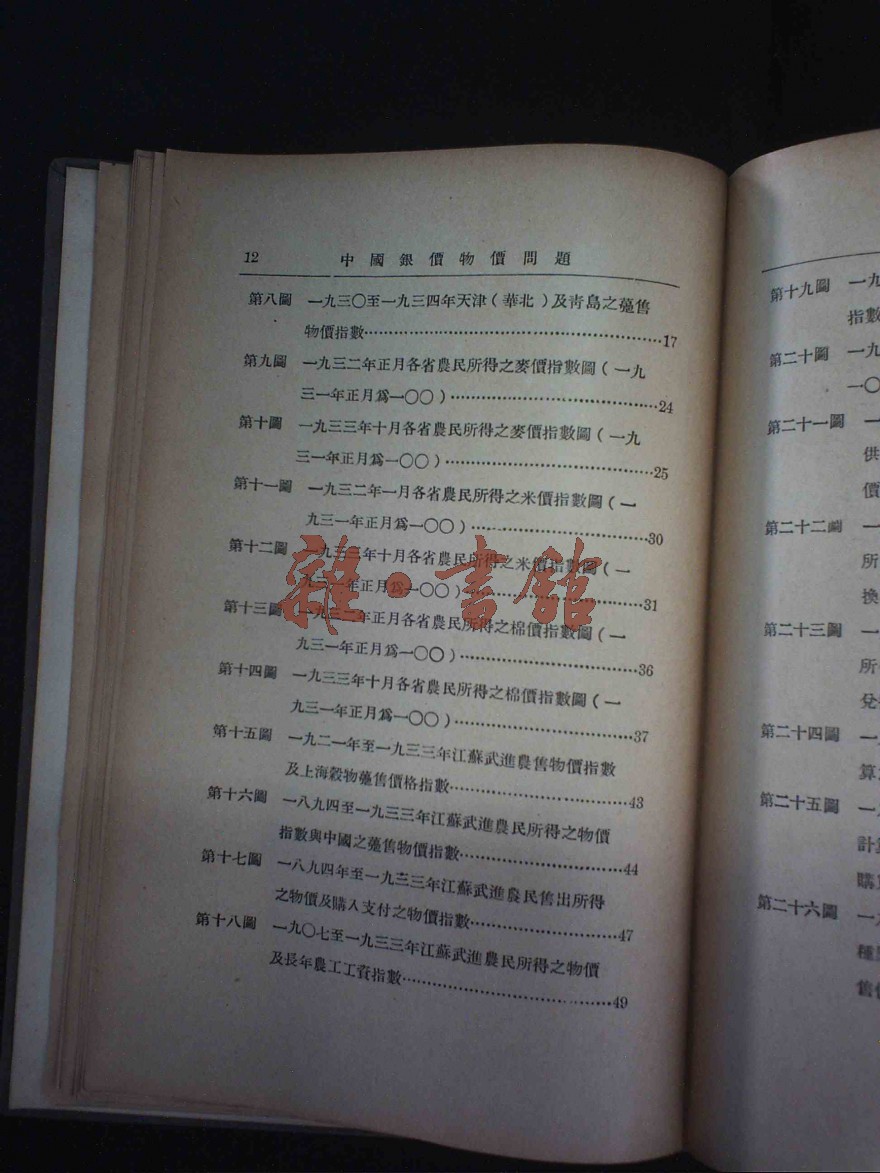 12 中國銀價物價問題
第八圖 一九三〇至一九三四年天津（華北）及青島之躉售
物價指數……17
第九圖 一九三二年正月各省農民所得之麥價指數圖（一九
三一年正月爲一〇〇）……24
第十圖 一九三三年十月各省農民所得之麥價指數圖（一九
三一年正月爲一〇〇）……25
第十一圖 一九三二年一月各省農民所得之米價指數圖（一
九三一年正月爲一〇〇）……30
第十二圖 一九三三年十月各省農民所得之米價指數圖（一
九三一年正月爲一〇〇）……31
第十三圖 一九三二年正月各省農民所得之棉價指數圖（一
九三一年正月爲一〇〇）……36
第十四圖 一九三三年十月各省農民所得之棉價指數圖（一
九三一年正月爲一〇〇）……37
第十五圖 一九二一年至一九三三年江蘇武進農售物價指數
及上海穀物躉售價格指數……43
第十六圖 一八九四至一九三三年江蘇武進農民所得之物價
指數與中國之躉售物價指數……44
第十七圖 一八九四年至一九三三年江蘇武進農民售出所得
之物價及購入支付之物價指數……47
第十八圖 一九〇七至一九三三年江蘇武進農民所得之物價
及長年農工工資指數……49
雜·書館
第十九圖 一九
指數
第二十圖 一九
一〇
第二十一圖 一
供
價
第二十二圖 一
所
換
第二十三圖 一
所
兌
第二十四圖 一
算
第二十五圖 一
計
購
第二十六圖 一
種
售